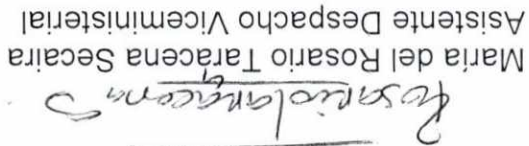 Rosario Taracena S
María del Rosario Taracena Secaira
Asistente Despacho Viceministerial